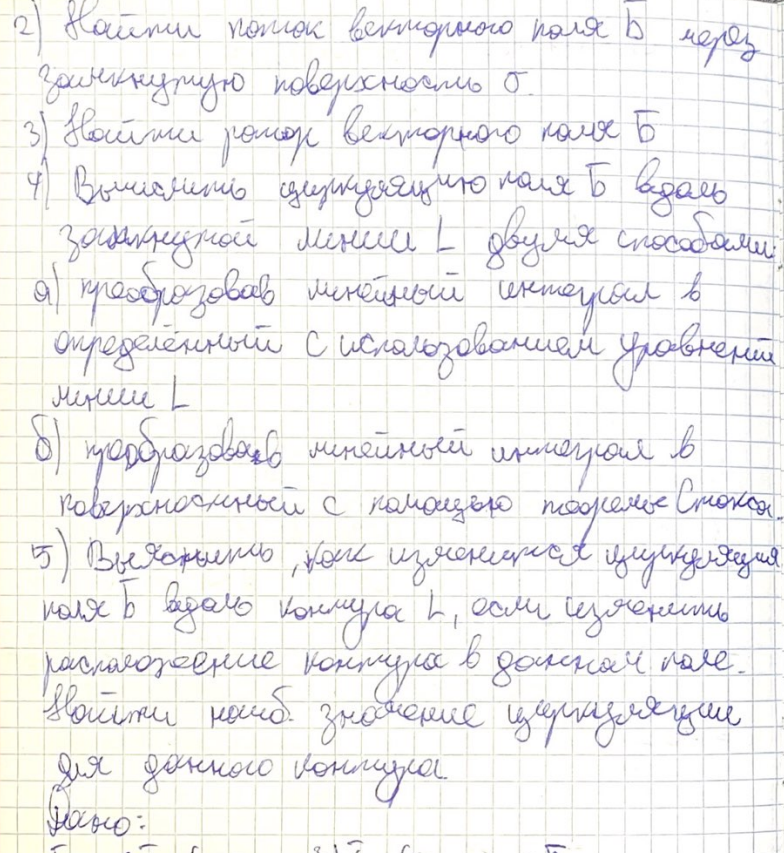 2) Найти поток векторного поля b̅ через
замкнутую поверхность σ.
3) Найти ротор векторного поля b̅
4) Вычислить циркуляцию поля b̅ вдоль
замкнутой линии L двумя способами:
а) преобразовав линейный интеграл в
определённый с использованием уравнений
линии L
б) преобразовав линейный интеграл в
поверхностный с помощью теоремы Стокса.
5) Выяснить, как изменится циркуляция
поля b̅ вдоль контура L, если изменить
расположение контура в данном поле.
Найти наиб. значение циркуляции
для данного контура.
Дано: